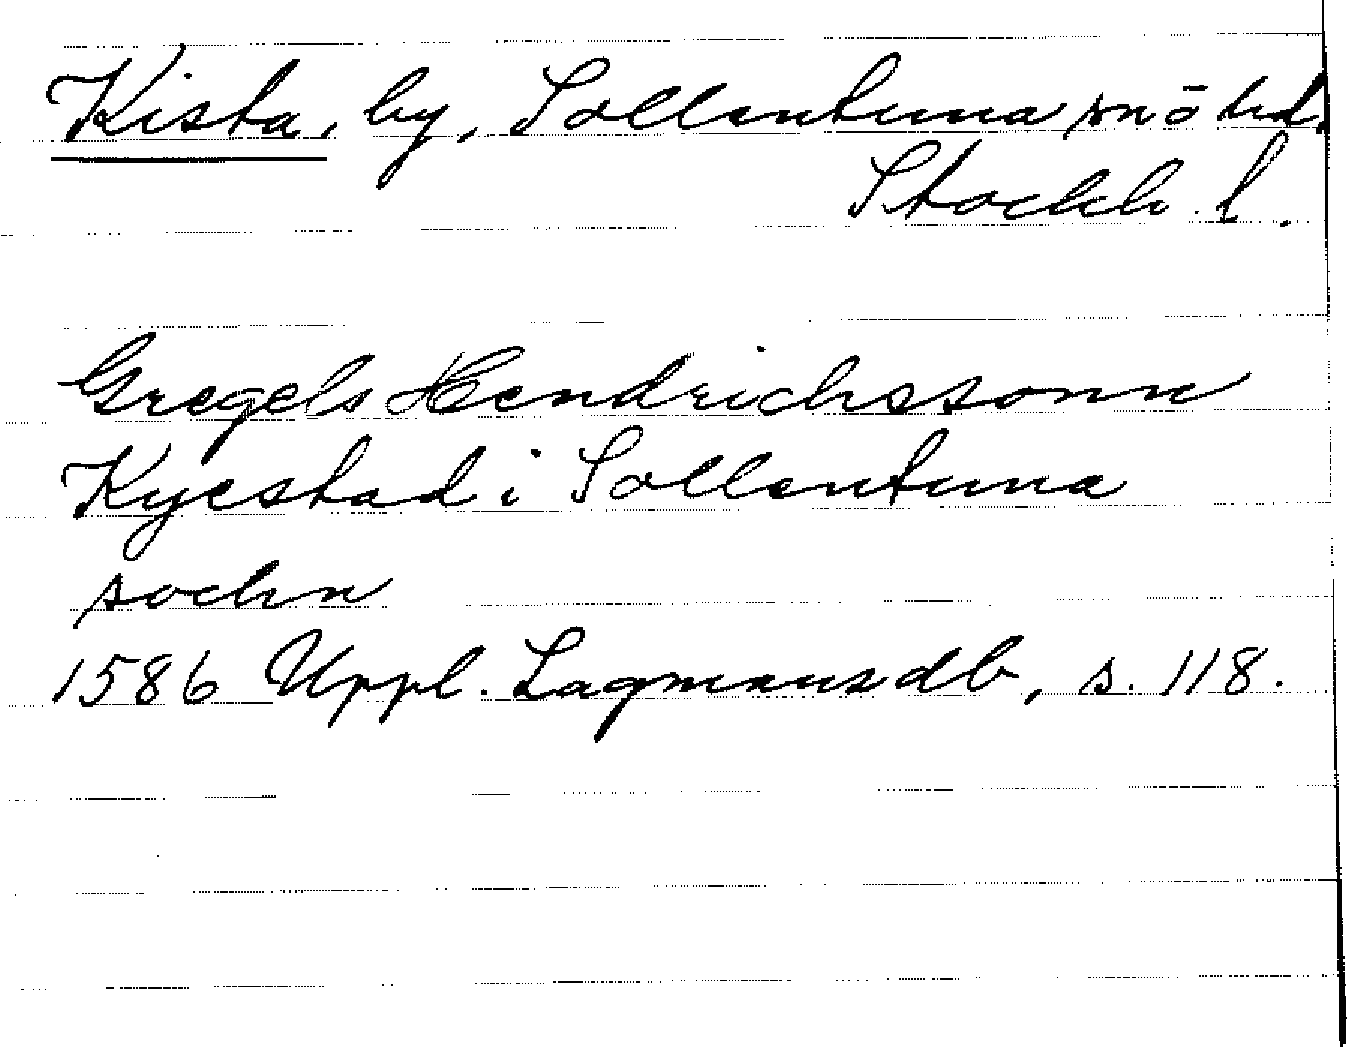 Kista, by, Sollentuna sn ō hd,
Stockh. l.
Gregels Hendrichssonn
Kyestad i Sollentuna
sochn
1586 Uppl. Lagmansdb, s. 118.